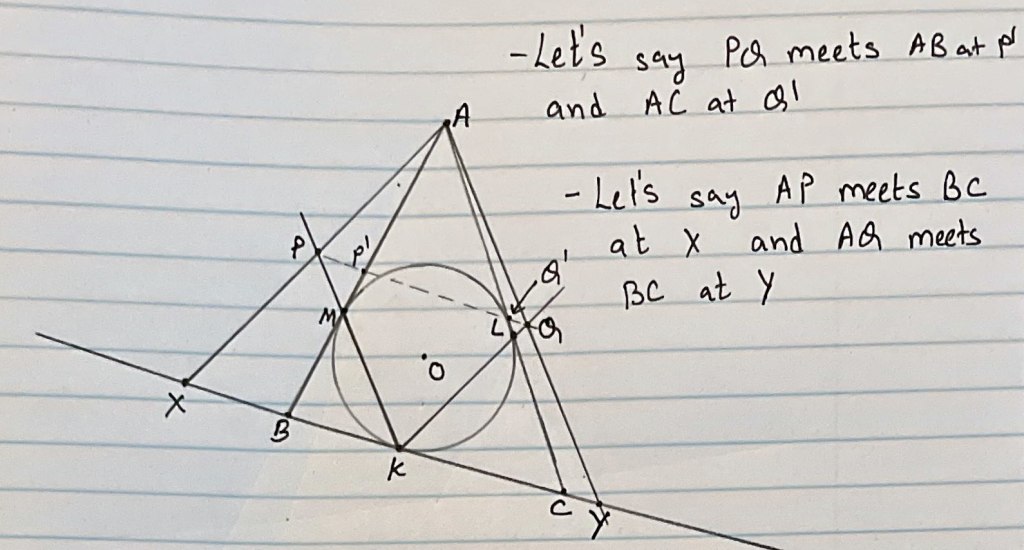 -Let's say PQ meets AB at P'
and AC at Q'
A
-Let's say AP meets BC
at X and AQ meets
BC at Y
P
P'
Q'
M
L
Q
O
X
B
K
C
Y